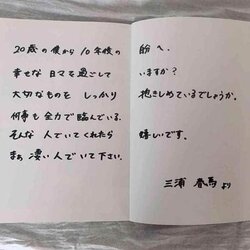 20歳の僕から10年後の
幸せな日々を過ごして
大切なものを しっかり
何事も全力で臨んでいる。
そんな人でいてくれたら
まぁ凄い人でいて下さい。
自分へ。
いますか？
抱きしめているでしょうか。
嬉しいです。
三浦 春馬より